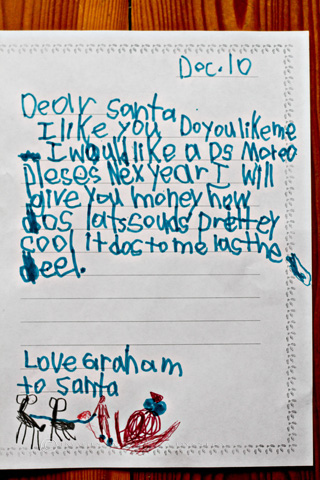 Dec. 10
Dear Santa
I like you Do you like me
I would like a DS Mateo
pleses Nex year I will
give you money how
dos lats souds prettey
cool it dos to me las the
deel.
Love Graham
to Santa